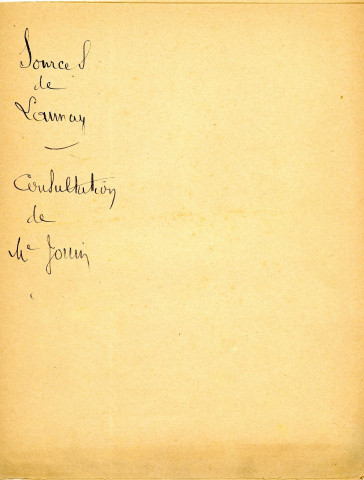 Sources
de
Launay
Consultation
de
Me Jouin